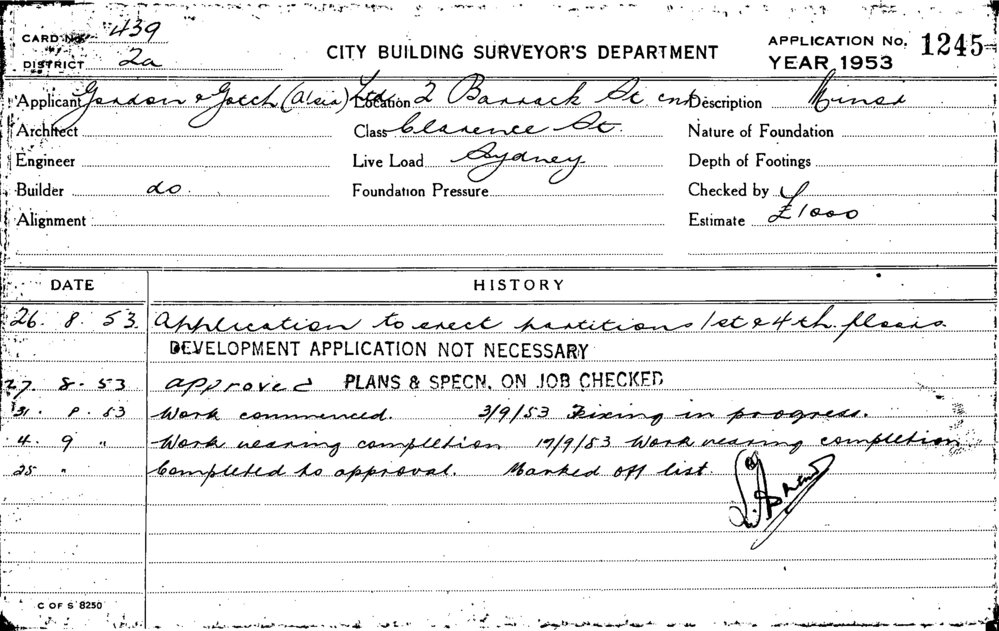 CARD No. 439
DISTRICT 2a
CITY BUILDING SURVEYOR'S DEPARTMENT
APPLICATION No. 1245
YEAR 1953
Applicant Gordon & Gotch (A/sia) Ltd. Location 2 Barrack St cnr Description Minor
Architect Class Clarence St. Nature of Foundation
Engineer Live Load Sydney Depth of Footings
Builder do. Foundation Pressure Checked by
Alignment Estimate £1000
DATE HISTORY
26. 8. 53. Application to erect partitions 1st & 4th floors.
DEVELOPMENT APPLICATION NOT NECESSARY
27. 8. 53 approved PLANS & SPECN. ON JOB CHECKED
31. 8. 53 Work commenced. 3/9/53 Fixing in progress.
4. 9 " Work nearing completion 17/9/53 Work nearing completion
25 " Completed to approval. Marked off list.
C OF S 8250